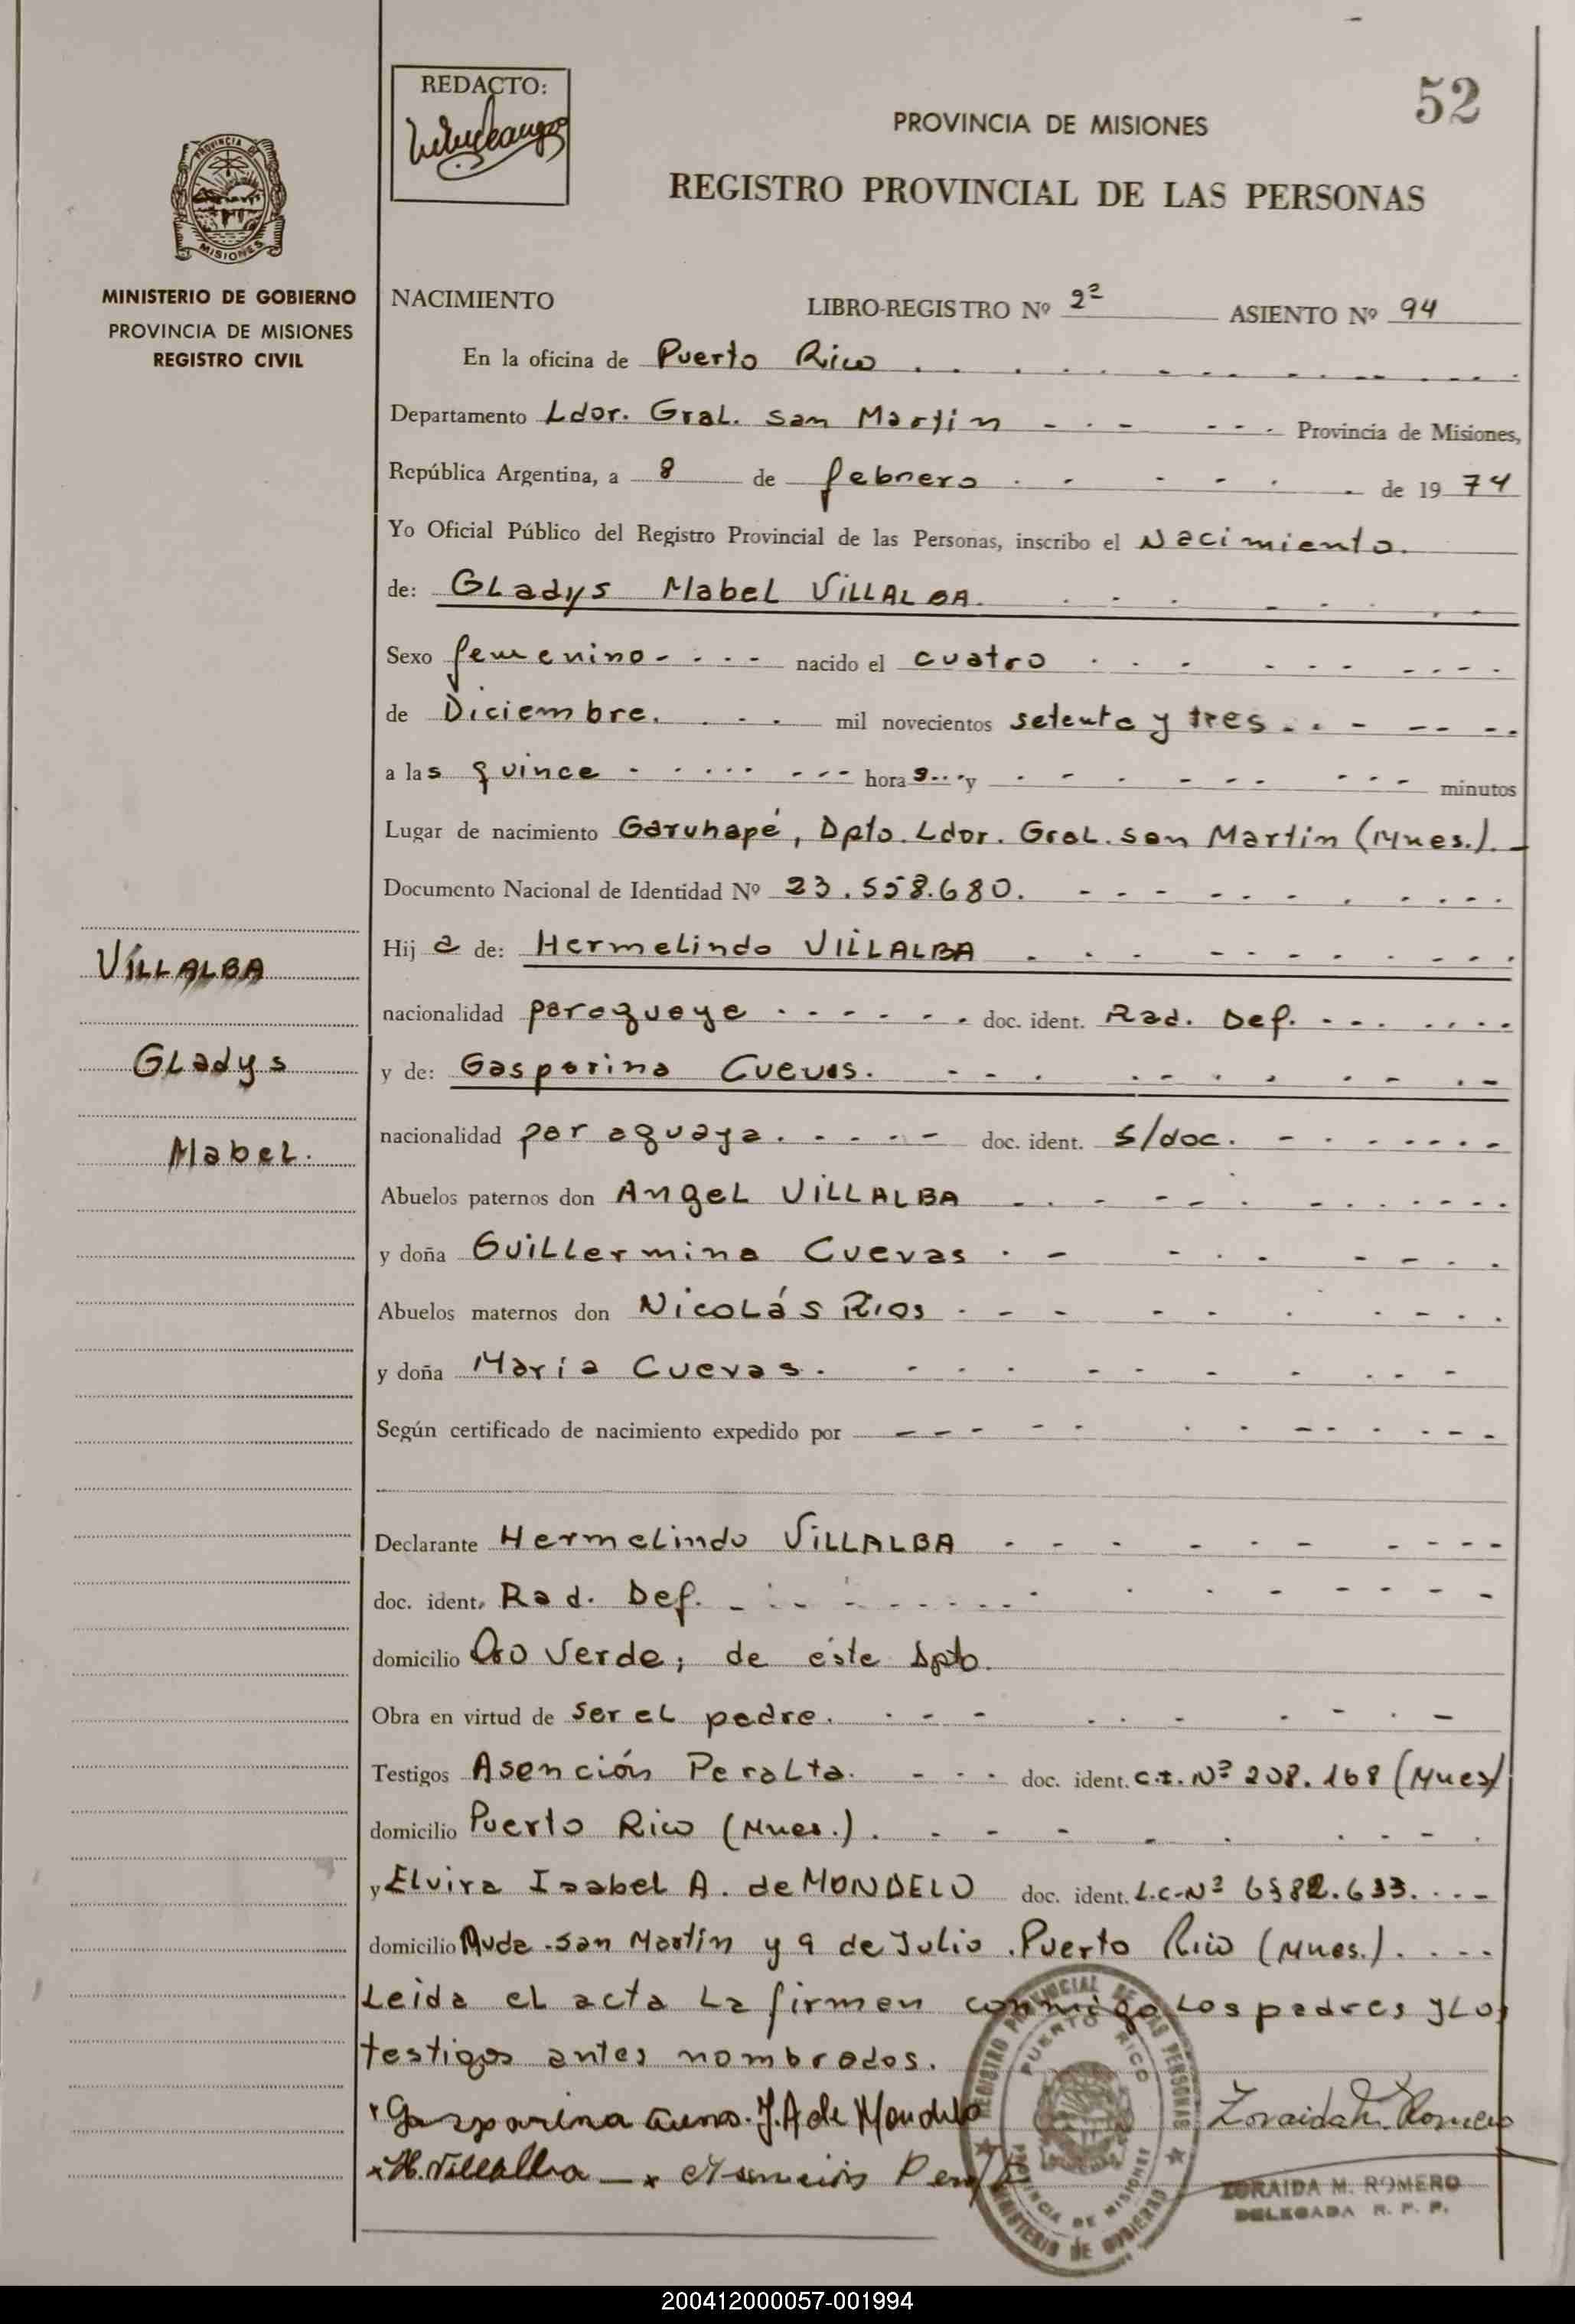 52
REDACTO:
PROVINCIA DE MISIONES
REGISTRO PROVINCIAL DE LAS PERSONAS
PROVINCIA DE
MISIONES
MINISTERIO DE GOBIERNO
PROVINCIA DE MISIONES
REGISTRO CIVIL
NACIMIENTO LIBRO-REGISTRO Nº 2º ASIENTO Nº 94
En la oficina de Puerto Rico
Departamento Ldor. Gral. San Martín Provincia de Misiones,
República Argentina, a 8 de febrero de 1974
Yo Oficial Público del Registro Provincial de las Personas, inscribo el Nacimiento.
de: GLadys Mabel VILLALBA.
Sexo femenino nacido el cuatro
de Diciembre. mil novecientos setenta y tres
a las quince horas y minutos
Lugar de nacimiento Garuhapé, Dpto. Ldor. Gral. San Martín (Mnes.).
Documento Nacional de Identidad Nº 23.558.680.
Hija de: Hermelindo VILLALBA
nacionalidad paraguaya doc. ident. Rad. Def.
y de: Gasparina Cuevas.
nacionalidad paraguaya. doc. ident. S/doc.
Abuelos paternos don Angel VILLALBA
y doña Guillermina Cuevas
Abuelos maternos don Nicolás Rios
y doña María Cuevas.
Según certificado de nacimiento expedido por
Declarante Hermelindo VILLALBA
doc. ident. Rad. Def.
domicilio Oro Verde, de éste Dpto.
Obra en virtud de ser el padre.
Testigos Asención Peralta. doc. ident. C.I. Nº 208.168 (Mnes)
domicilio Puerto Rico (Mnes.).
y Elvira Isabel A. de MONDELO doc. ident. L.C. Nº 6582.633.
domicilio Avda. San Martín y 9 de Julio. Puerto Rico (Mnes.).
Leida el acta La firman conmigo Los padres y Los
testigos antes nombrados.
VILLALBA
Gladys
Mabel.
Gasparina Cuevas. J. A de Mondelo
H. Villalba
REGISTRO PROVINCIAL DE LAS PERSONAS
PUERTO RICO
PROVINCIA DE MISIONES
MINISTERIO DE GOBIERNO
Zoraida M. Romero
ZORAIDA M. ROMERO
DELEGADA R. P. P.
200412000057-001994